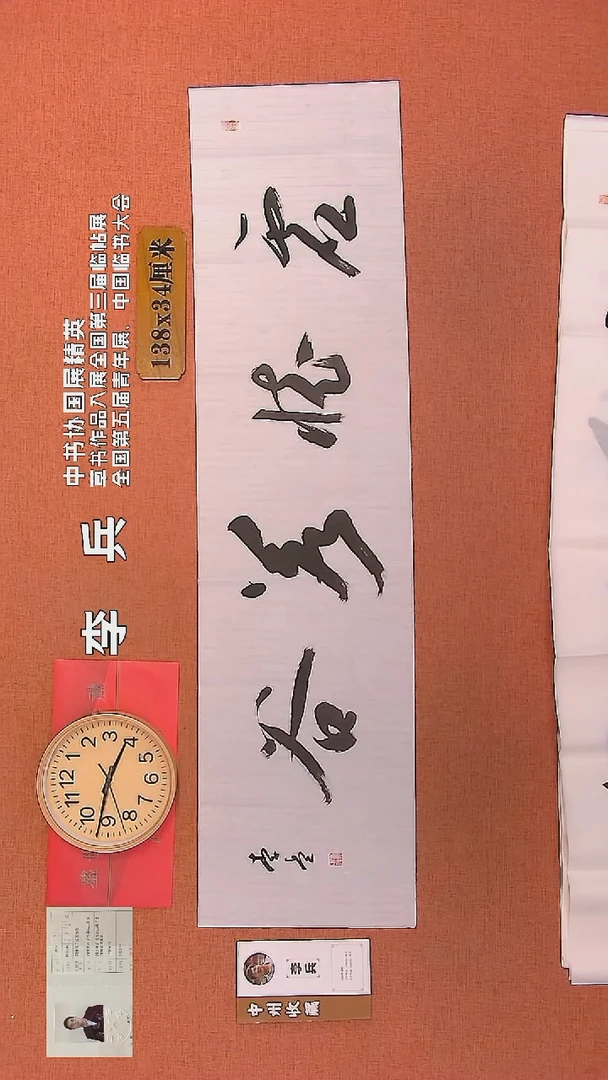 李 兵
中书协国展精英
草书作品入展全国第三届临帖展
全国第五届青年展、中国临书大会
138x34厘米
虚怀若谷
李兵
12
1
2
3
4
5
6
7
8
9
10
11
李兵
中州收藏